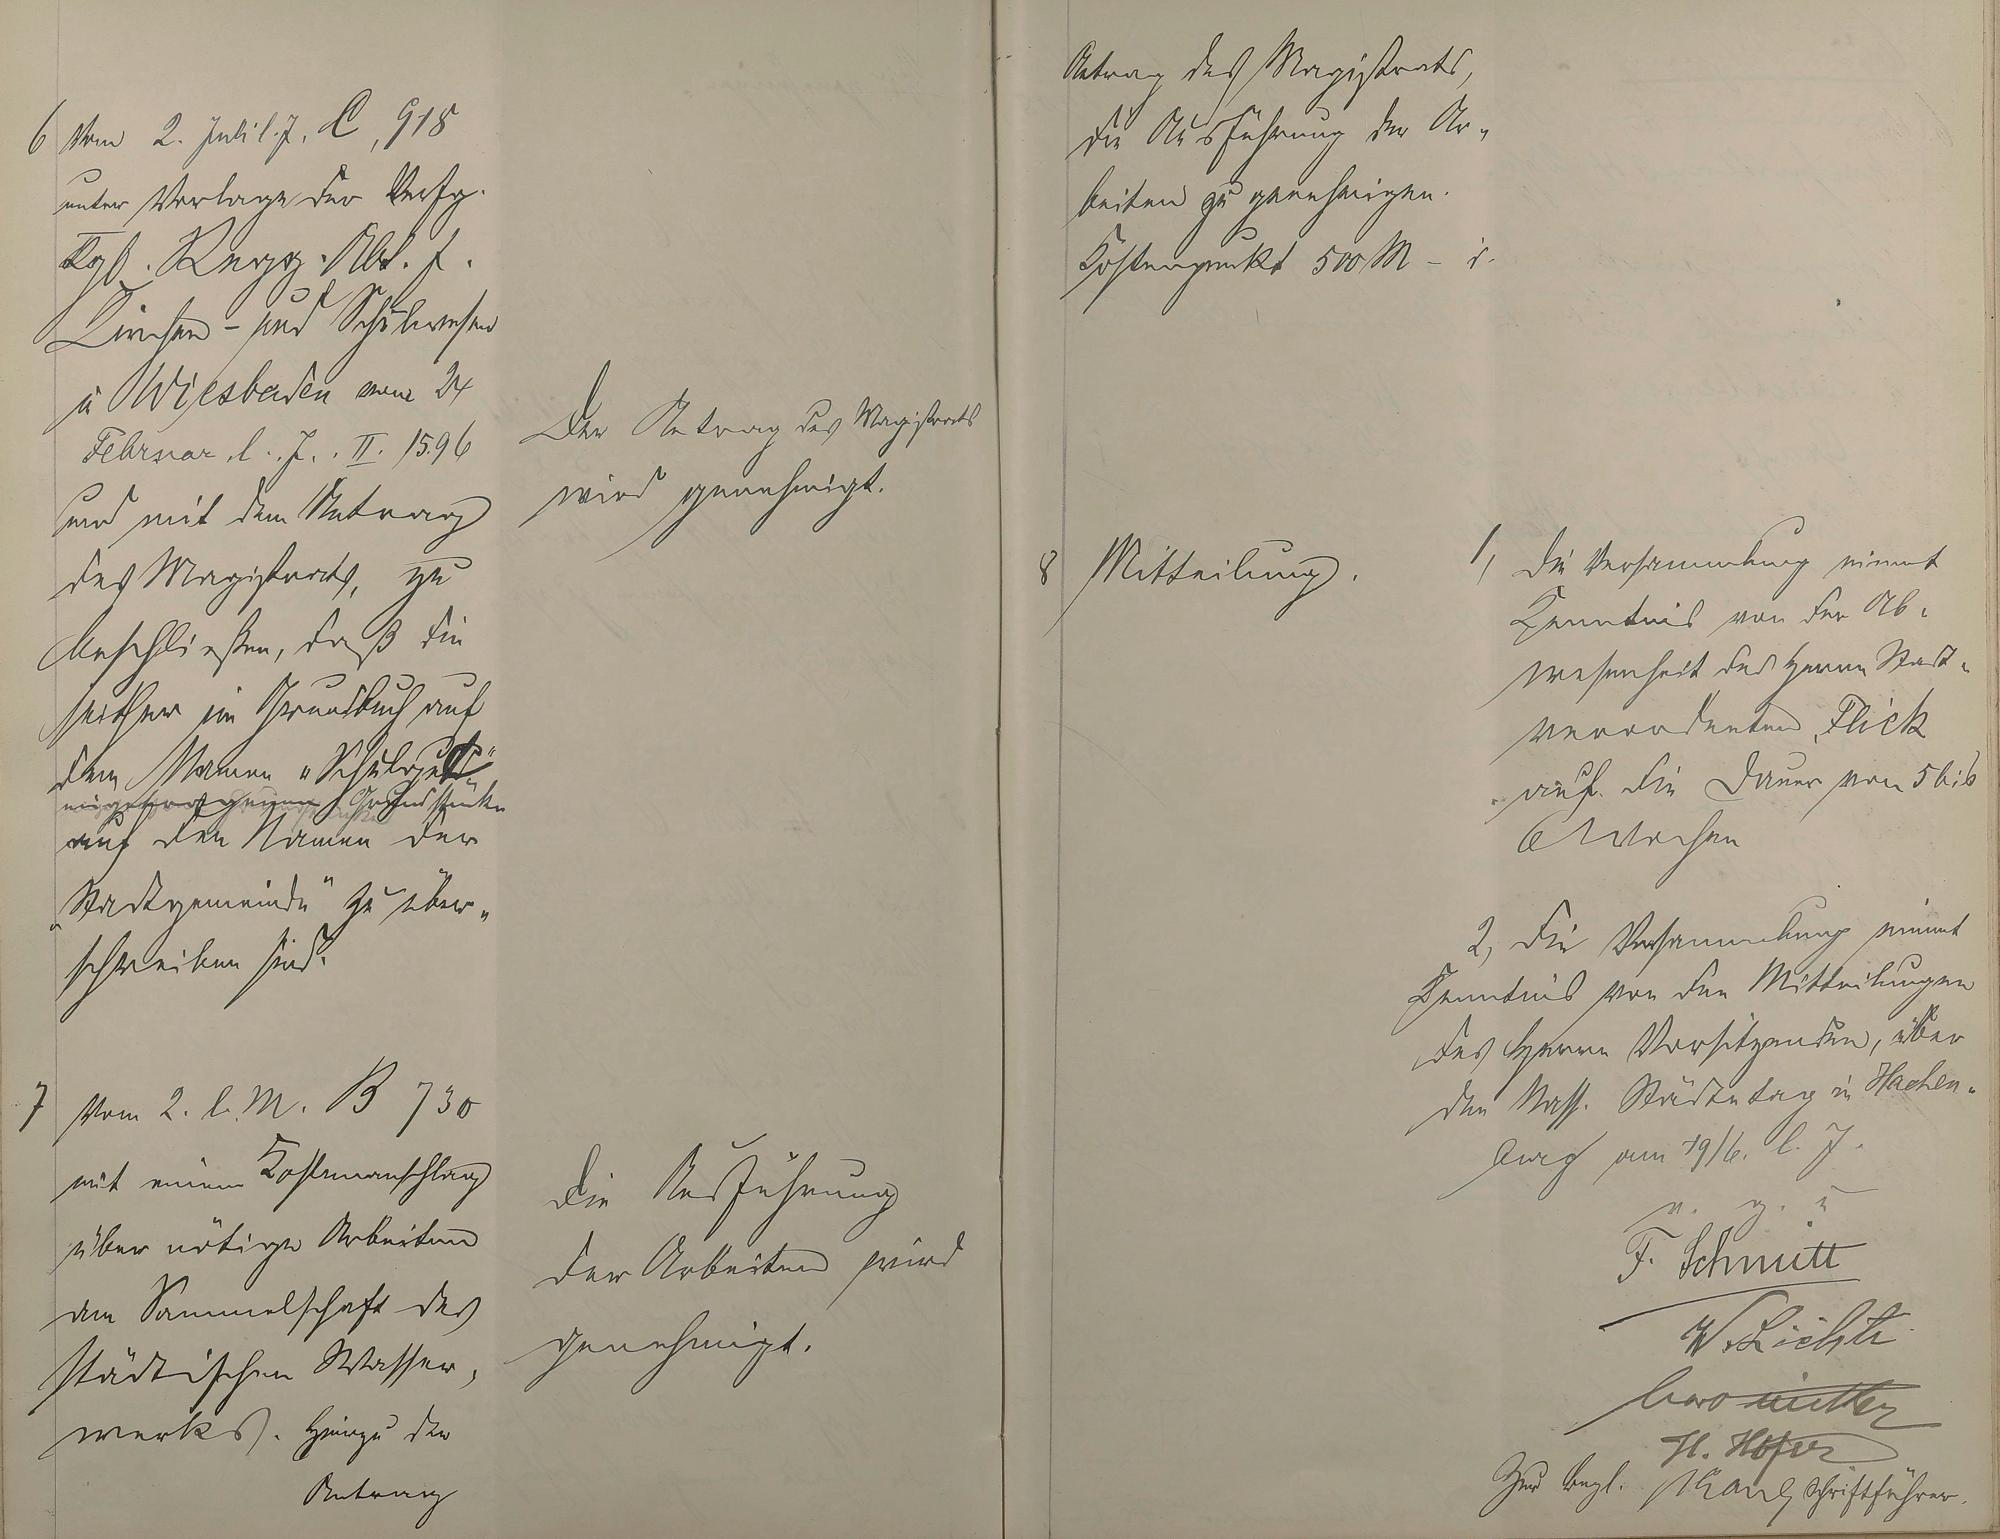 6 Vom 2. Juli l. J. C, 918
unter Vorlage der Verfg.
Kgl. Regg. Abt. f.
Kirchen- und Schulwesen
in Wiesbaden vom 24
Februar l. J. II. 1596
und mit dem Antrag
des Magistrats, zu
beschließen, daß die
seither im Grundbuch auf
den Namen "Schulgut"
eingetragenen Grundstücke
auf den Namen der
"Stadtgemeinde" zu über-
schreiben sind.
Der Antrag des Magistrats
wird genehmigt.
7 Vom 2. l. M. B 730
mit einem Kostenanschlag
über nötige Arbeiten
am Sammelschaft des
städtischen Wasser-
werks. Hierzu der
Antrag
Die Ausführung
der Arbeiten wird
genehmigt.
Antrag des Magistrats,
die Ausführung der Ar-
beiten zu genehmigen.
Kostenpunkt 500 M -
8 Mitteilung.
1, Die Versammlung nimmt
Kenntnis von der Ab-
wesenheit des Herrn Stadt-
verordneten Flick
auf die Dauer von 5 bis
6 Wochen
2, Die Versammlung nimmt
Kenntnis von den Mitteilungen
des Herrn Vorsitzenden, über
den Nass. Städtetag in Hachen-
burg am 19/6. l. J.
v. g. u
F. Schmitt
W. Lichti
H. Hofer
Zur Begl. Schriftführer.